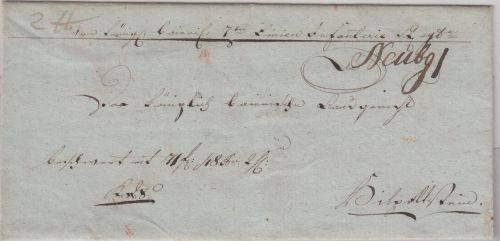 Vom Königl. baierisch. 7ten Linien Infanterie Regte
Neubg
Das Königlich baierische Landgericht
beschwert mit 71 f 18 Kr 2
R.d.S.
Hilpoltstein.